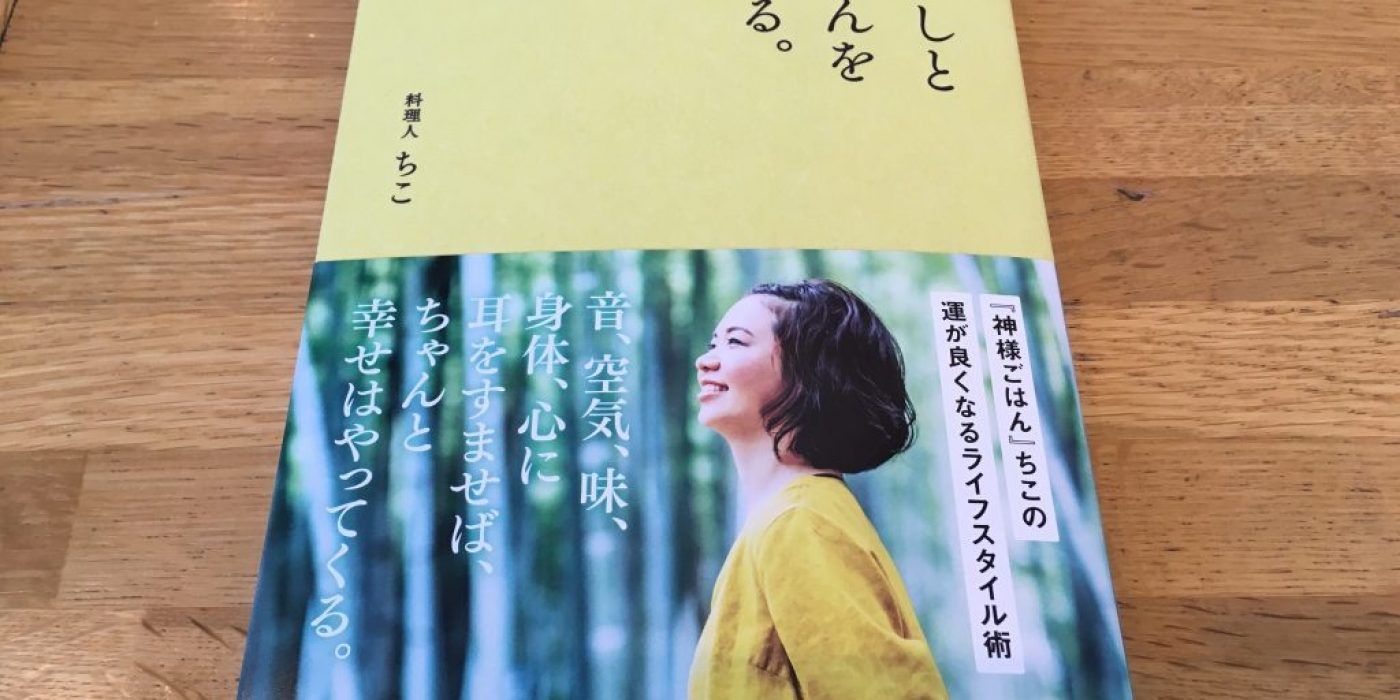 しと
んを
る。
料理人 ちこ
『神様ごはん』ちこの
運が良くなるライフスタイル術
音、空気、味、
身体、心に
耳をすませば、
ちゃんと
幸せはやってくる。